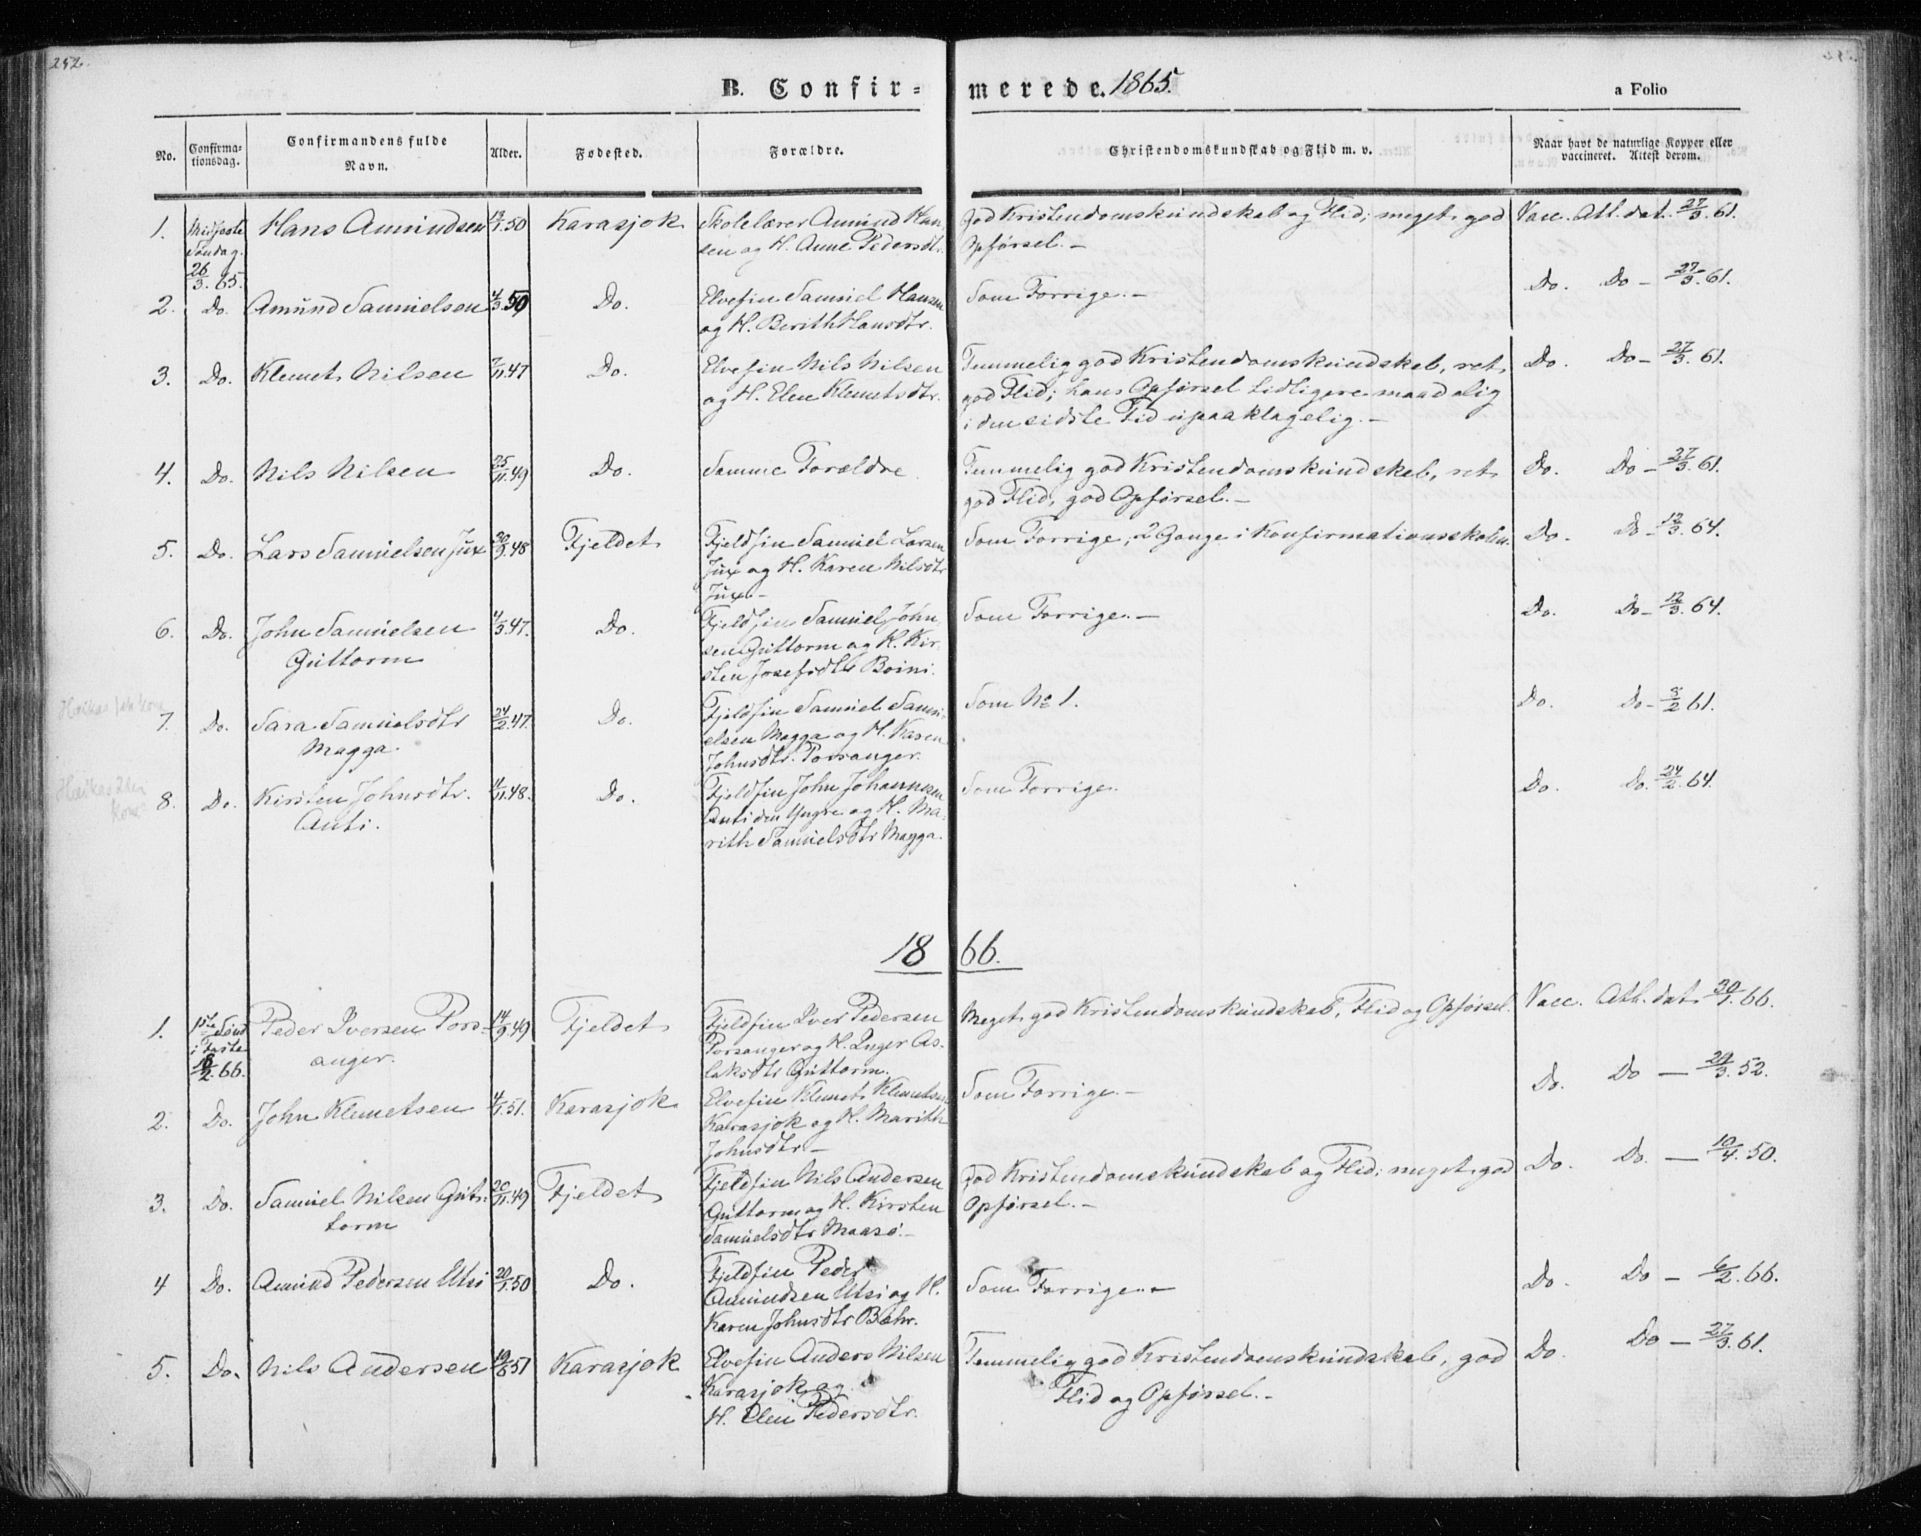 252.
B. Confirmerede. 1865.
a Folio
No.
Confirmationsdag.
Confirmandens fulde Navn.
Alder.
Fødested.
Forældre.
Christendomskundskab og Flid m. v.
Naar havt de naturlige Kopper eller vaccineret. Attest derom.
1. Midfaste Søndag. 26/3. 65. Hans Amundsen 50 Karasjok Skolelærer Amund Han
sen og H. Anne Pedersdtr. God Kristendomskundskab og Flid; meget god Opførsel. — Vacc. Att. dat. 27/3. 61.
2. Do. Amund Samuelsen 4/3. 50 Do. Elvefin Samuel Hansen
og H. Berith Hansdtr. Som Forrige. — Do. Do — 27/3. 61.
3. Do. Klemet Nilsen 7/11. 47 Do. Elvefin Nils Nilsen
og H. Elen Klemetsdtr. Temmelig god Kristendomskundskab, ret
god Flid; hans Opførsel tidligere maadelig
i den sidste Tid upaaklagelig. — Do. Do — 27/3. 61.
4. Do. Nils Nilsen 25/11. 49 Do. Samme Forældre Temmelig god Kristendomskundskab, ret
god Flid, god Opførsel. — Do. Do — 27/3. 61.
5. Do. Lars Samuelsen Jux 30/9. 48 Fjeldet Fjeldfin Samuel Larsen
Jux og H. Karen Nilsdtr
Jux. — Som Forrige, 2 Gange i Konfirmationsskolen. Do. Do — 12/3. 64.
6. Do. John Samuelsen
Guttorm 4/3. 47. Do. Fjeldfin Samuel John
sen Guttorm og H. Kir
sten Josefsdtr Boini. Som Forrige. — Do. Do — 12/3. 64.
7. Do. Sara Samuelsdtr
Magga. 24/2. 47. Do. Fjeldfin Samuel Samu
elsen Magga og H. Karen
Johnsdtr. Porsanger. Som No 1. Do. Do — 8/2 61.
8. Do. Kirsten Johnsdtr.
Anti. 4/11. 48. Do. Fjeldfin John Johannesen
Anti den Yngre og H. Ma-
rith Samuelsdtr Magga. Som Forrige. Do. Do. 24/2. 64.
1866.
1. 1ste Sønd
i Faste
/2. 66. Peder Iversen Pors-
anger. 14/9. 49 Fjeldet Fjeldfin Iver Pedersen
Porsanger og H. Inger As-
laksdtr Guttorm. Meget god Kristendomskundskab, Flid og Opførsel. Vacc. Att. dat. 30/1. 66.
2. Do. John Klemetsen 4/1. 51. Karasjok Elvefin Klemet Klemetsen
Karasjok og H. Marith
Johnsdtr — Som Forrige. — Do. Do — /3. 52.
3. Do. Samuel Nilsen Gut-
torm 20/11. 49 Fjeldet Fjeldfin Nils Andersen
Guttorm og H. Kirsten
Samuelsdtr Maasø. — God Kristendomskundskab og Flid; meget god
Opførsel. — Do. Do. — 10/4. 50.
4 Do. Amund Pedersen Utsi 20/1. 50 Do. Fjeldfin Peder
Amundsen Utsi og H.
Karen Johnsdtr Bæhr. Som Forrige. — Do. Do — 6/2. 66.
5. Do. Nils Andersen 51 Karasjok Elvefin Anders Nilsen
Karasjok og
H. Elen Pedersdtr. Temmelig god Kristendomskundskab, god
Flid og Opførsel. — Do. Do — 27/3. 61.